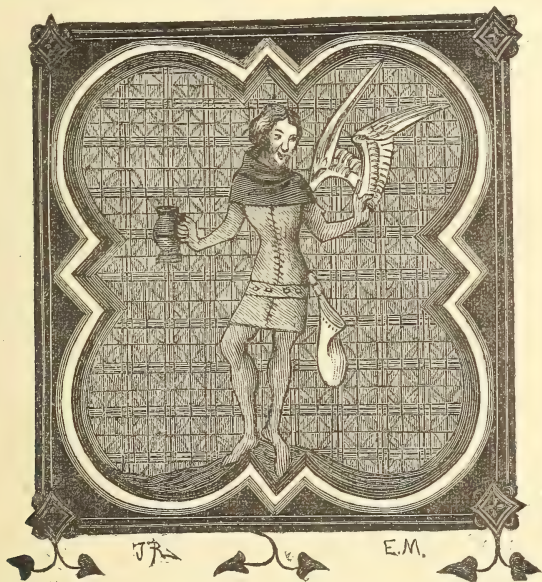 JR
E.M.